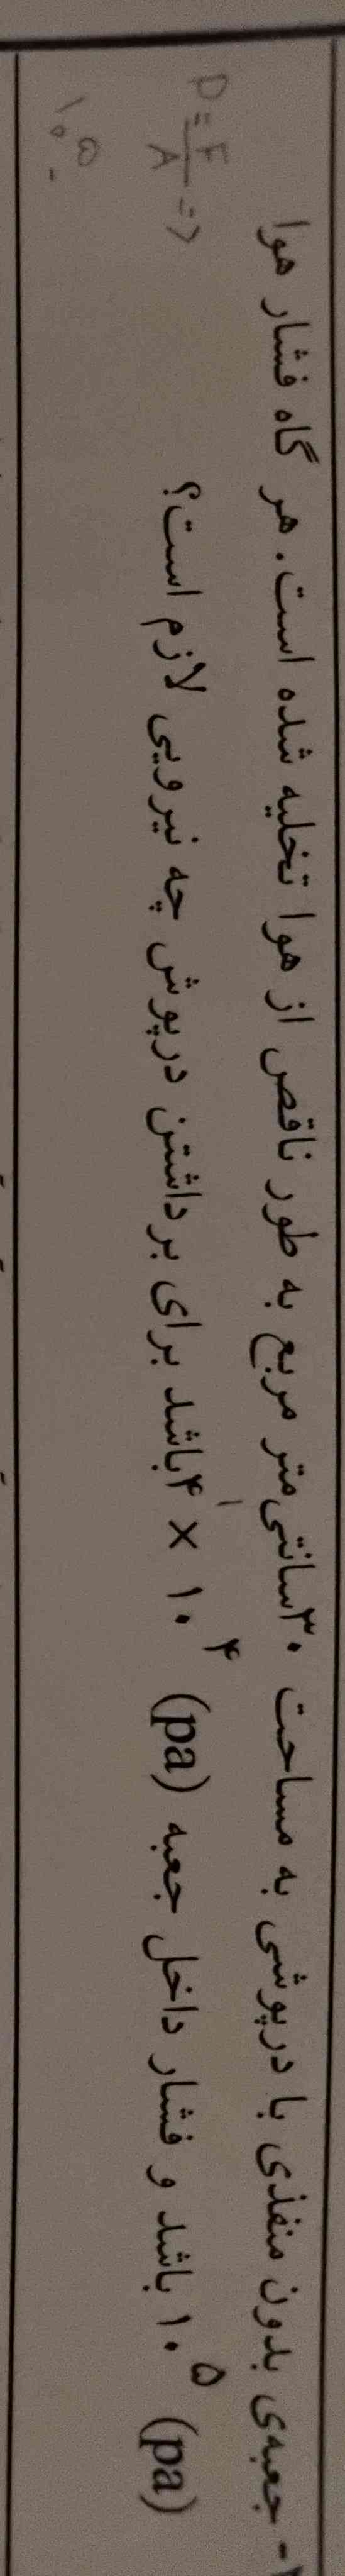 - جعبه‌ی بدون منفذی با درپوشی به مساحت ۳۰سانتی‌متر مربع به طور ناقص از هوا تخلیه شده است. هر گاه فشار هوا
(pa) ۱۰^۵ باشد و فشار داخل جعبه (pa) ۴ × ۱۰^۴باشد برای برداشتن درپوش چه نیرویی لازم است؟
P = F/A =>
۱۰^۵ -